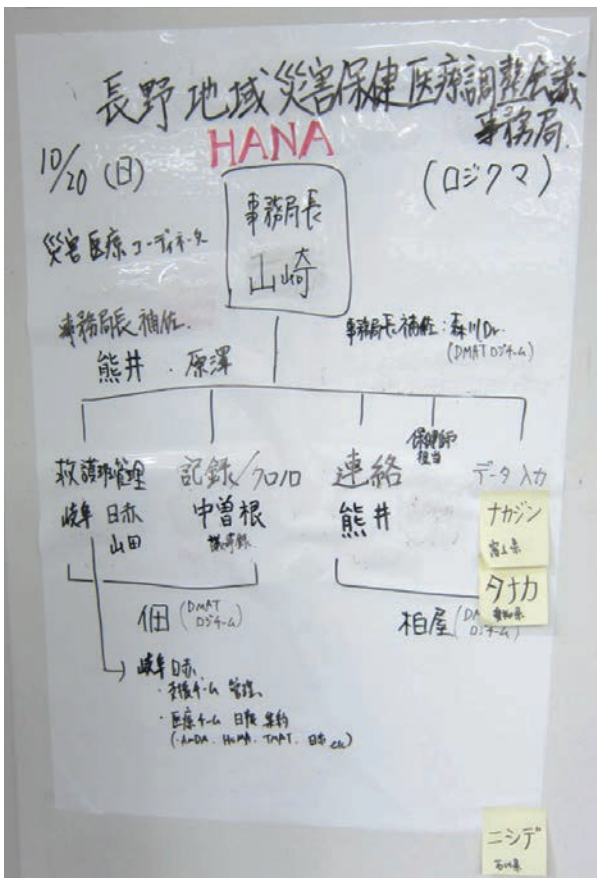 長野地域災害保健医療調整会議
事務局
HANA
10/20 (日)
(ロジクマ)
事務局長
山崎
災害医療コーディネータ
事務局長補佐
熊井・原澤
事務局長補佐:森川Dr.
(DMATロジチーム)
救護班管理
岐阜 日赤
山田
記録/クロノロ
中曽根
議事録
連絡
熊井
保健師
担当
データ入力
ナカジン
富山県
タナカ
愛知県
佃 (DMAT
ロジチーム)
柏屋 (DM
ロジチーム)
岐阜日赤
・支援チーム 管理、
・医療チーム 日報 集約
(・AMDA、HuMA、TMAT、日赤 etc)
ニシデ
石川県